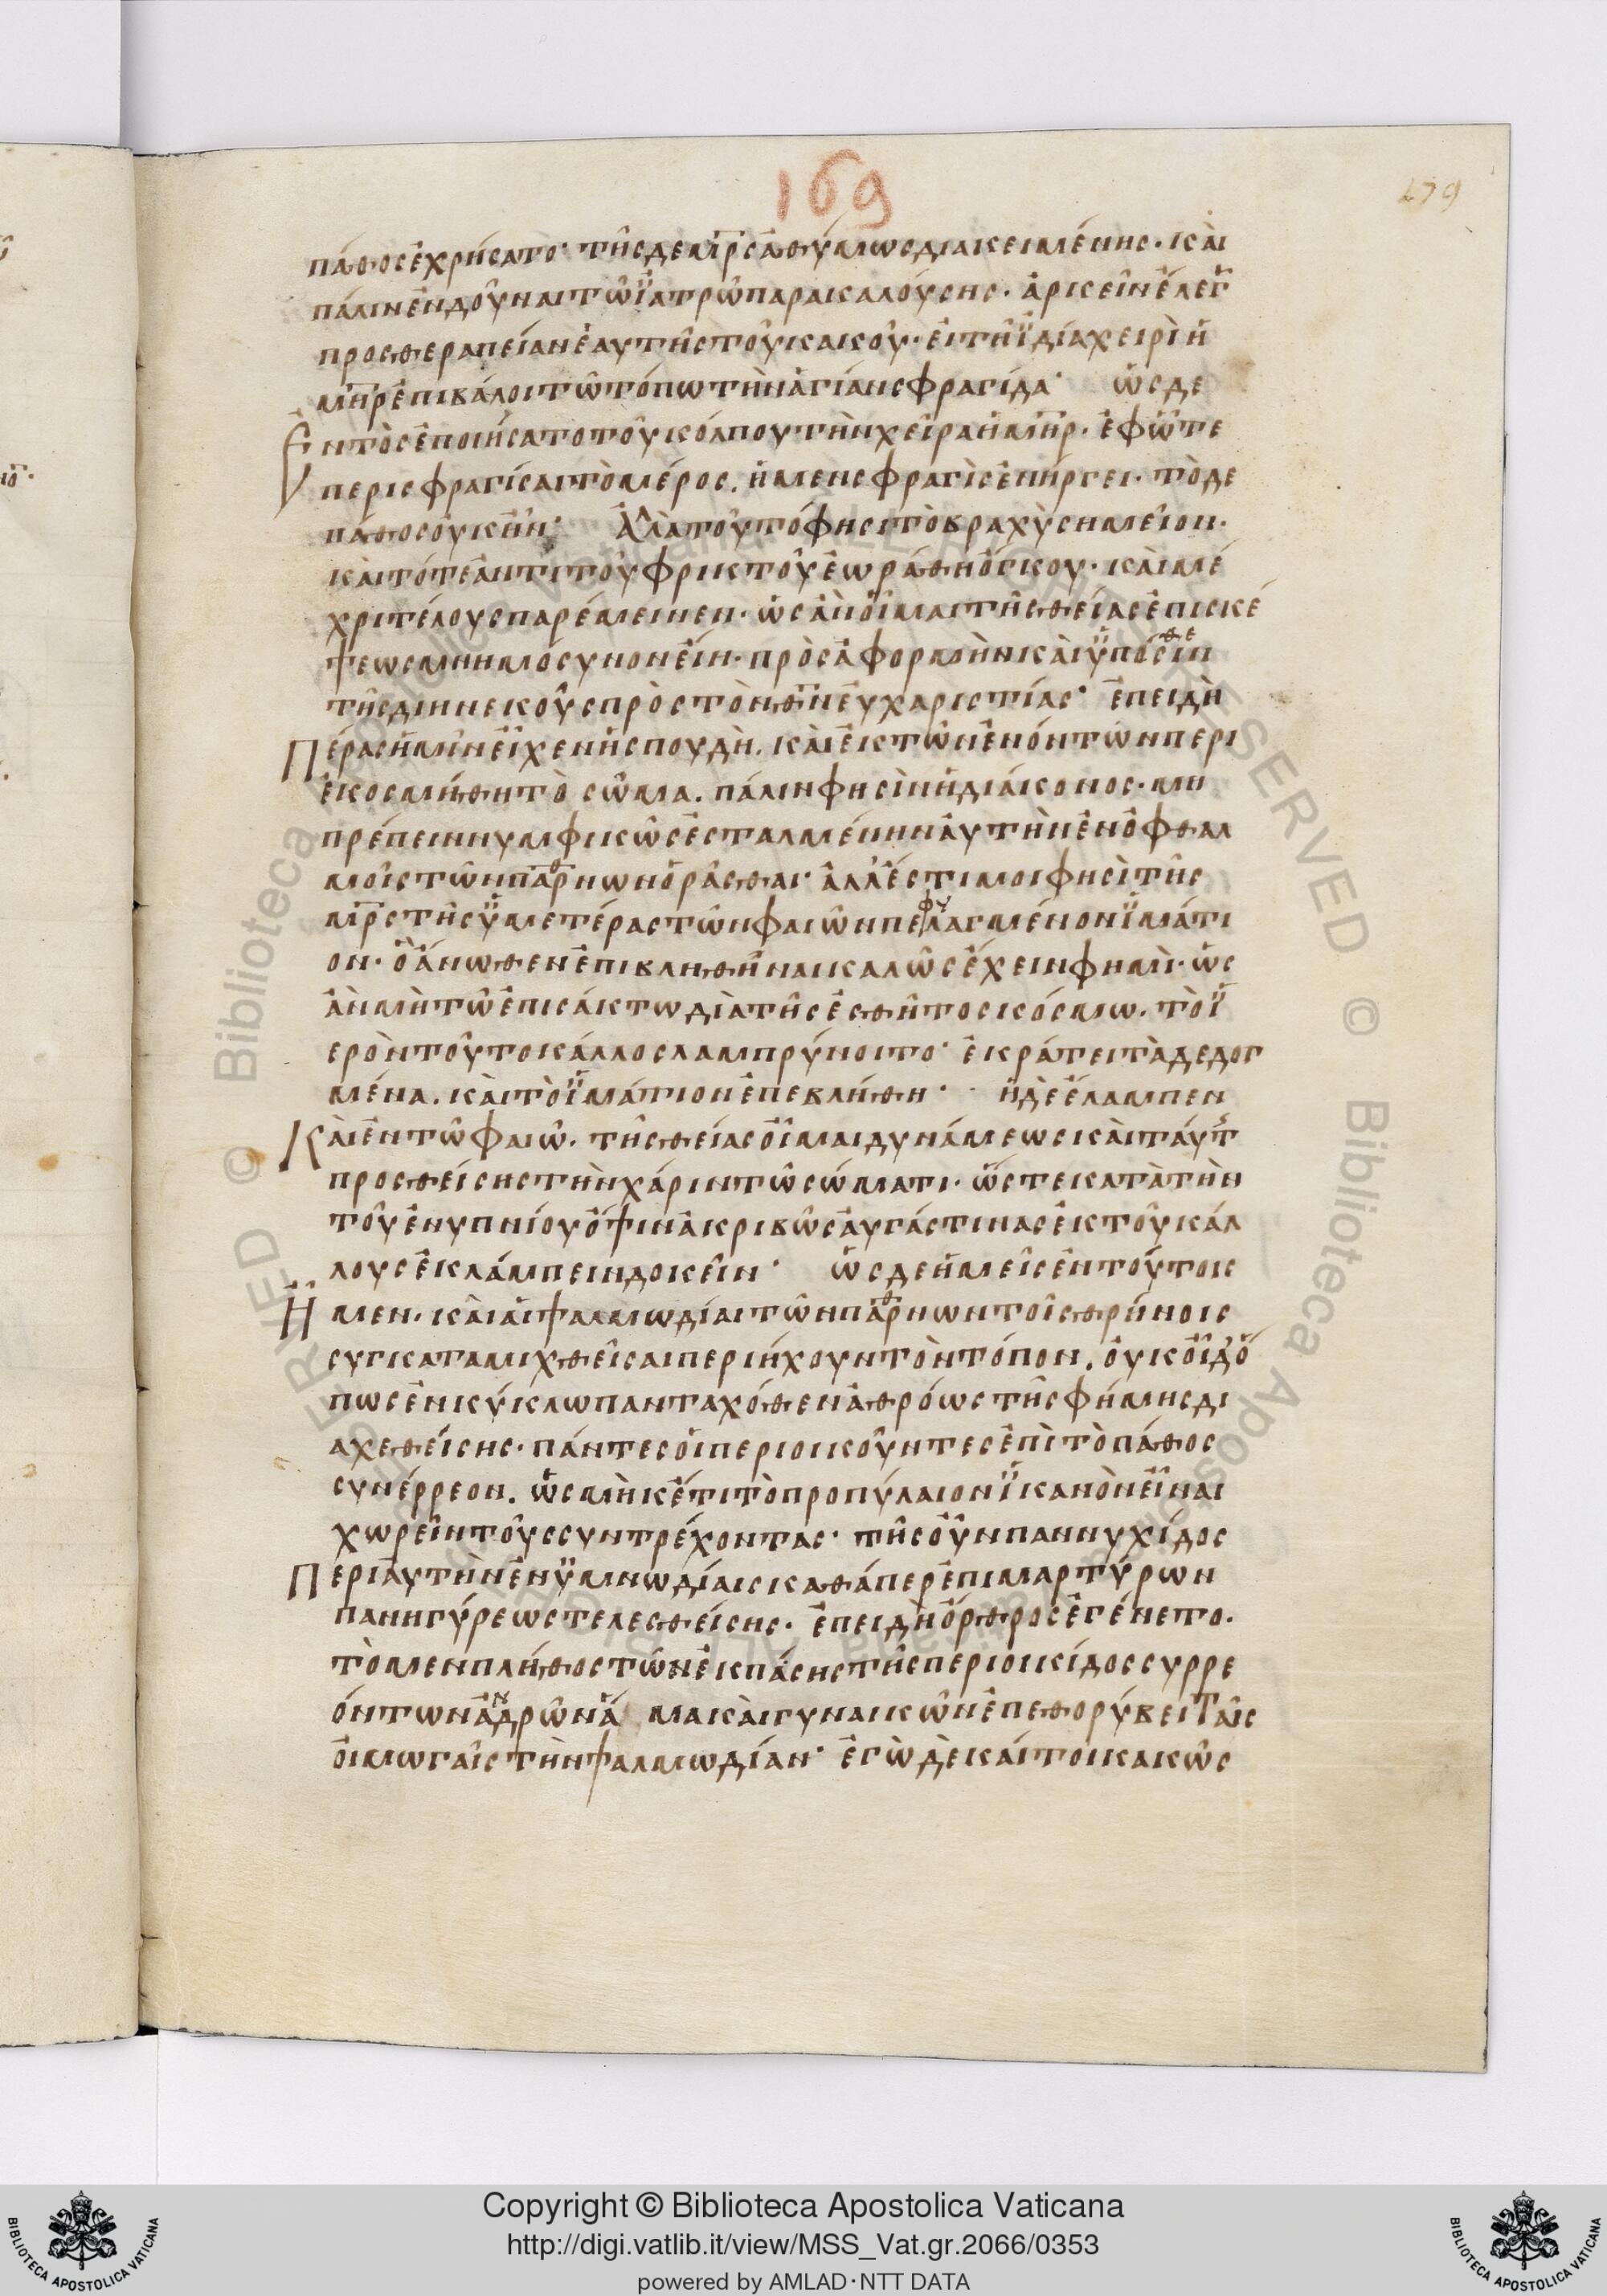 169
179
πάθος ἐχρήσατο· τῆς δὲ μρ̅ς ἀθύμως διακειμένης· καὶ
πάλιν ἐνδοῦναι τῶ ἰατρῶ παρακαλούσης· ἀρκεῖν ἔλεγ
προς θεραπείαν ἑαυτῆς τοῦ κακοῦ· εἰ τῆ ἰδία χειρὶ ἡ
μη̅ρ ἐπιβάλοι τῶ τόπω τὴν ἁγίαν σφραγίδα· ὡς δε
ἐντὸς ἐποιήσατο τοῦ κόλπου τὴν χεῖρα ἡ μη̅ρ· ἐφ ὧτε
περισφραγίσαι τὸ μέρος. ἡ μεν σφραγὶς ἐνήργει· τὸ δε
πάθος οὐκ ἦν· Ἀλλὰ τοῦτό φησι τὸ βραχὺ σημεῖον·
καὶ τότε ἀντι τοῦ φρικτοῦ ἑωράθη ὄγκου· καὶ μέ
χρι τέλους παρέμεινεν· ὡς ἂν οἶμαι τῆς θείας ἐπισκέ
ψεως μνημόσυνον εἴη· πρὸς ἀφορμὴν καὶ ὑπόθεσιν
τῆς διηνεκοῦς πρὸς τὸν θν̅ εὐχαριστίας· ἐπειδὴ
Πέρας ἡμῖν εἶχεν ἡ σπουδὴ. καὶ ἐκ τῶν ἐνόντων περι
εκοσμήθη τὸ σῶμα. πάλιν φησὶν ἡ διάκονος· μη
πρέπειν νυμφικῶς ἐσταλμένην αὐτὴν ἐν ὀφθαλ
μοῖς τῶν παρθνων ὁρᾶσθαι· ἀλλ' ἔστι μοι φησὶ τῆς
μρ̅ς τῆς ὑμετέρας τῶν φαιῶν πεφυλαγμένον ἱμάτι
ον· ὃ ἄνωθεν ἐπιβληθῆναι καλῶς ἔχειν φημὶ· ὡς
ἂν μὴ τῶ ἐπισάκτω διὰ τῆς ἐσθῆτος κόσμω. τὸ ἱ
ερὸν τοῦτο κάλλος λαμπρύνοιτο· ἐκράτει τὰ δεδογ
μένα. καὶ τὸ ἱμάτιον ἐπεβλήθη· ἡ δὲ ἔλαμπεν
Καὶ ἐν τῶ φαιῶ. τῆς θείας οἶμαι δυνάμεως καὶ ταύτ
προσθείσης τὴν χάριν τῶ σώματι· ὥστε κατὰ τὴν
τοῦ ἐνυπνίου ὄψιν ἀκριβῶς αὐγάς τινας ἐκ τοῦ κάλ
λους ἐκλάμπειν δοκεῖν· ὡς δε ἡμεῖς ἐν τούτοις
Ἦμεν· καὶ αἱ ψαλμωδίαι τῶν παρθνων τοῖς θρήνοις
συγκαταμιχθεῖσαι περιήχουν τὸν τόπον. οὐκ οἶδ ὅ
πως ἐν κύκλω πανταχόθεν ἀθρόως τῆς φήμης δι
αχεθείσης· πάντες οἱ περιοικοῦντες ἐπὶ τὸ πάθος
συνέρρεον. ὡς μὴκέτι τὸ προπύλαιον ἱκανὸν εἶναι
χωρεῖν τοὺς συντρέχοντας· τῆς οὖν παννυχίδος
Περὶ αὐτὴν ἐν ὑμνωδίαις καθάπερ ἐπι μαρτύρων
πανηγύρεως τελεσθείσης· ἐπειδὴ ὄρθρος ἐγένετο·
τὸ μεν πλήθος τῶν ἐκ πάσης τῆς περιοικίδος συρρε
όντων ἀνδρῶν ἅμα καὶ γυναικῶν ἐπεθορύβει ταῖς
οἰμωγαῖς τὴν ψαλμωδίαν· ἐγὼ δὲ καίτοι κακῶς
Copyright © Biblioteca Apostolica Vaticana
http://digi.vatlib.it/view/MSS_Vat.gr.2066/0353
powered by AMLAD·NTT DATA